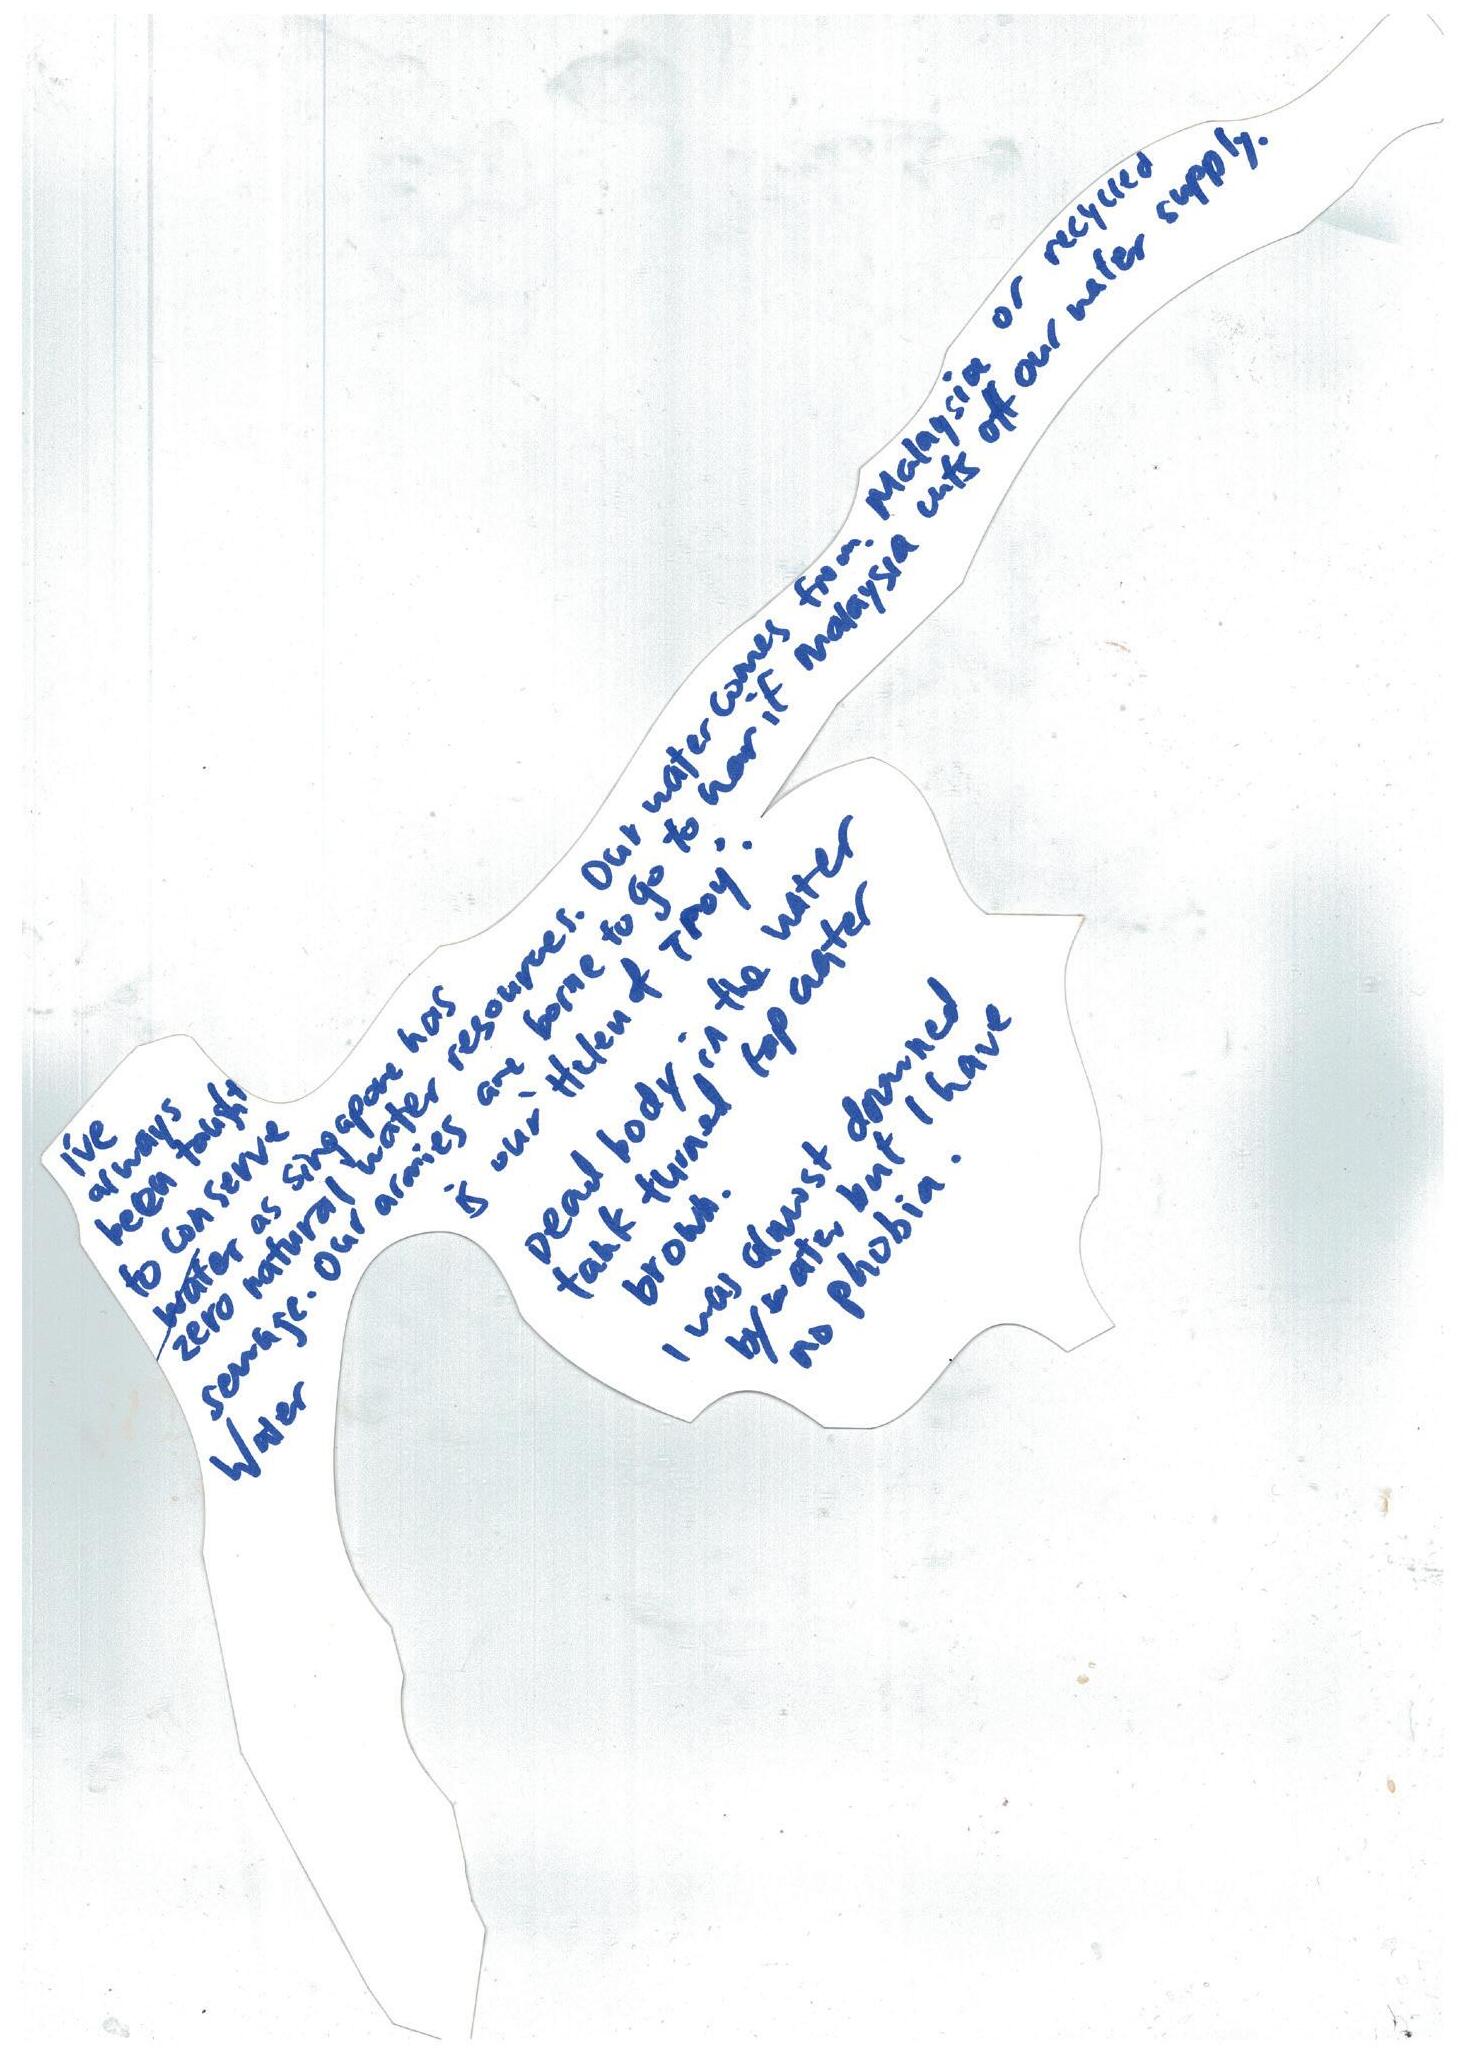 I've
always
been taught
to conserve
water as singapore has
zero natural water resources. Our water comes from Malaysia or recycled
sewage. Our armies are borne to go to war if Malaysia cuts off our water supply.
Water is our Helen of Troy.
Dead body in the water
tank turned tap water
brown.
I was almost drowned
by water but I have
no phobia.